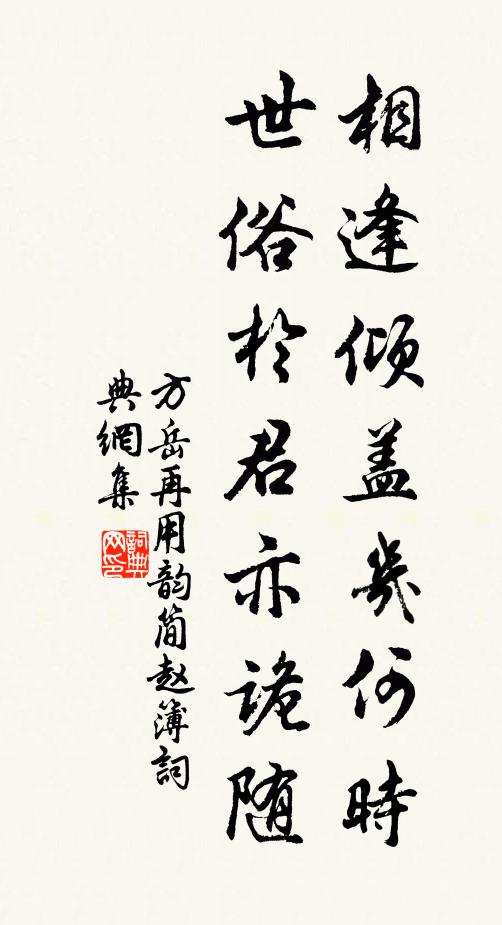 相逢倾盖几何時
世俗於君亦詭随
方岳再用韵简赵簿詞
典網集
詞典网印